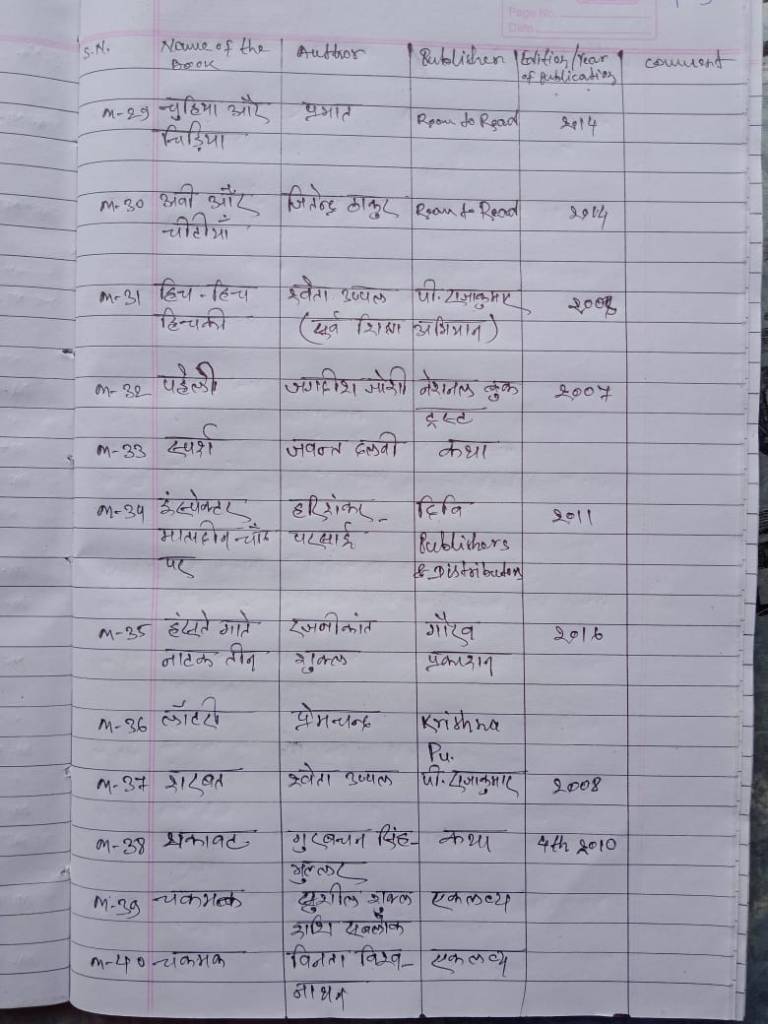 Page No.
Date
S.N. Name of the Book Author Publisher Edition/Year of Publication Comment
M-29 चुहिया और प्रभात Room to Read 2014
चिड़िया
M-30 अवी और जितेन्द्र ठाकुर Room to Read 2014
चीटीयाँ
M-31 हिच-हिच श्वेता उप्पल पी. राजाकुमार 2008
हिचकी (सर्व शिक्षा अभियान)
M-32 पहेली जगदीश जोशी नेशनल बुक 2007
ट्रस्ट
M-33 स्पर्श जयन्त दलवी कथा
M-34 इंस्पेक्टर हरिशंकर दिवि 2011
मातादीन चाँद परसाई Publishers
पर & Distributers
M-35 हंसते गाते रजनीकांत गौरव 2016
नाटक तीन शुक्ल प्रकाशन
M-36 लॉटरी प्रेमचन्द Krishna
Pu.
M-37 शरबत श्वेता उप्पल पी. राजाकुमार 2008
M-38 थकावट गुरबचन सिंह- कथा 4th 2010
भुल्लर
M-39 चकमक सुशील शुक्ल एकलव्य
शशि सबलोक
M-40 चकमक विनता विश्व- एकलव्य
नाथन